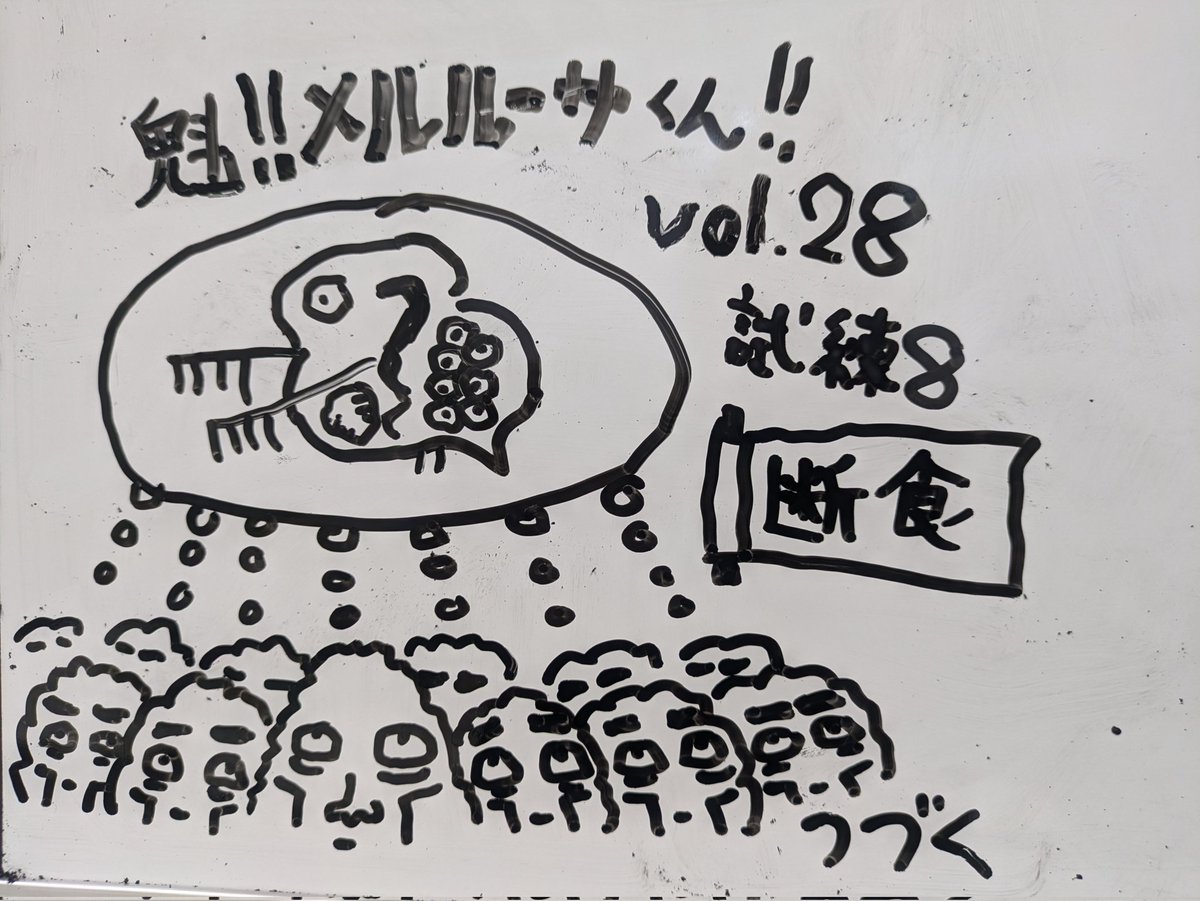 魁!!メルルーサくん!!
vol.28
試練8
断食
つづく